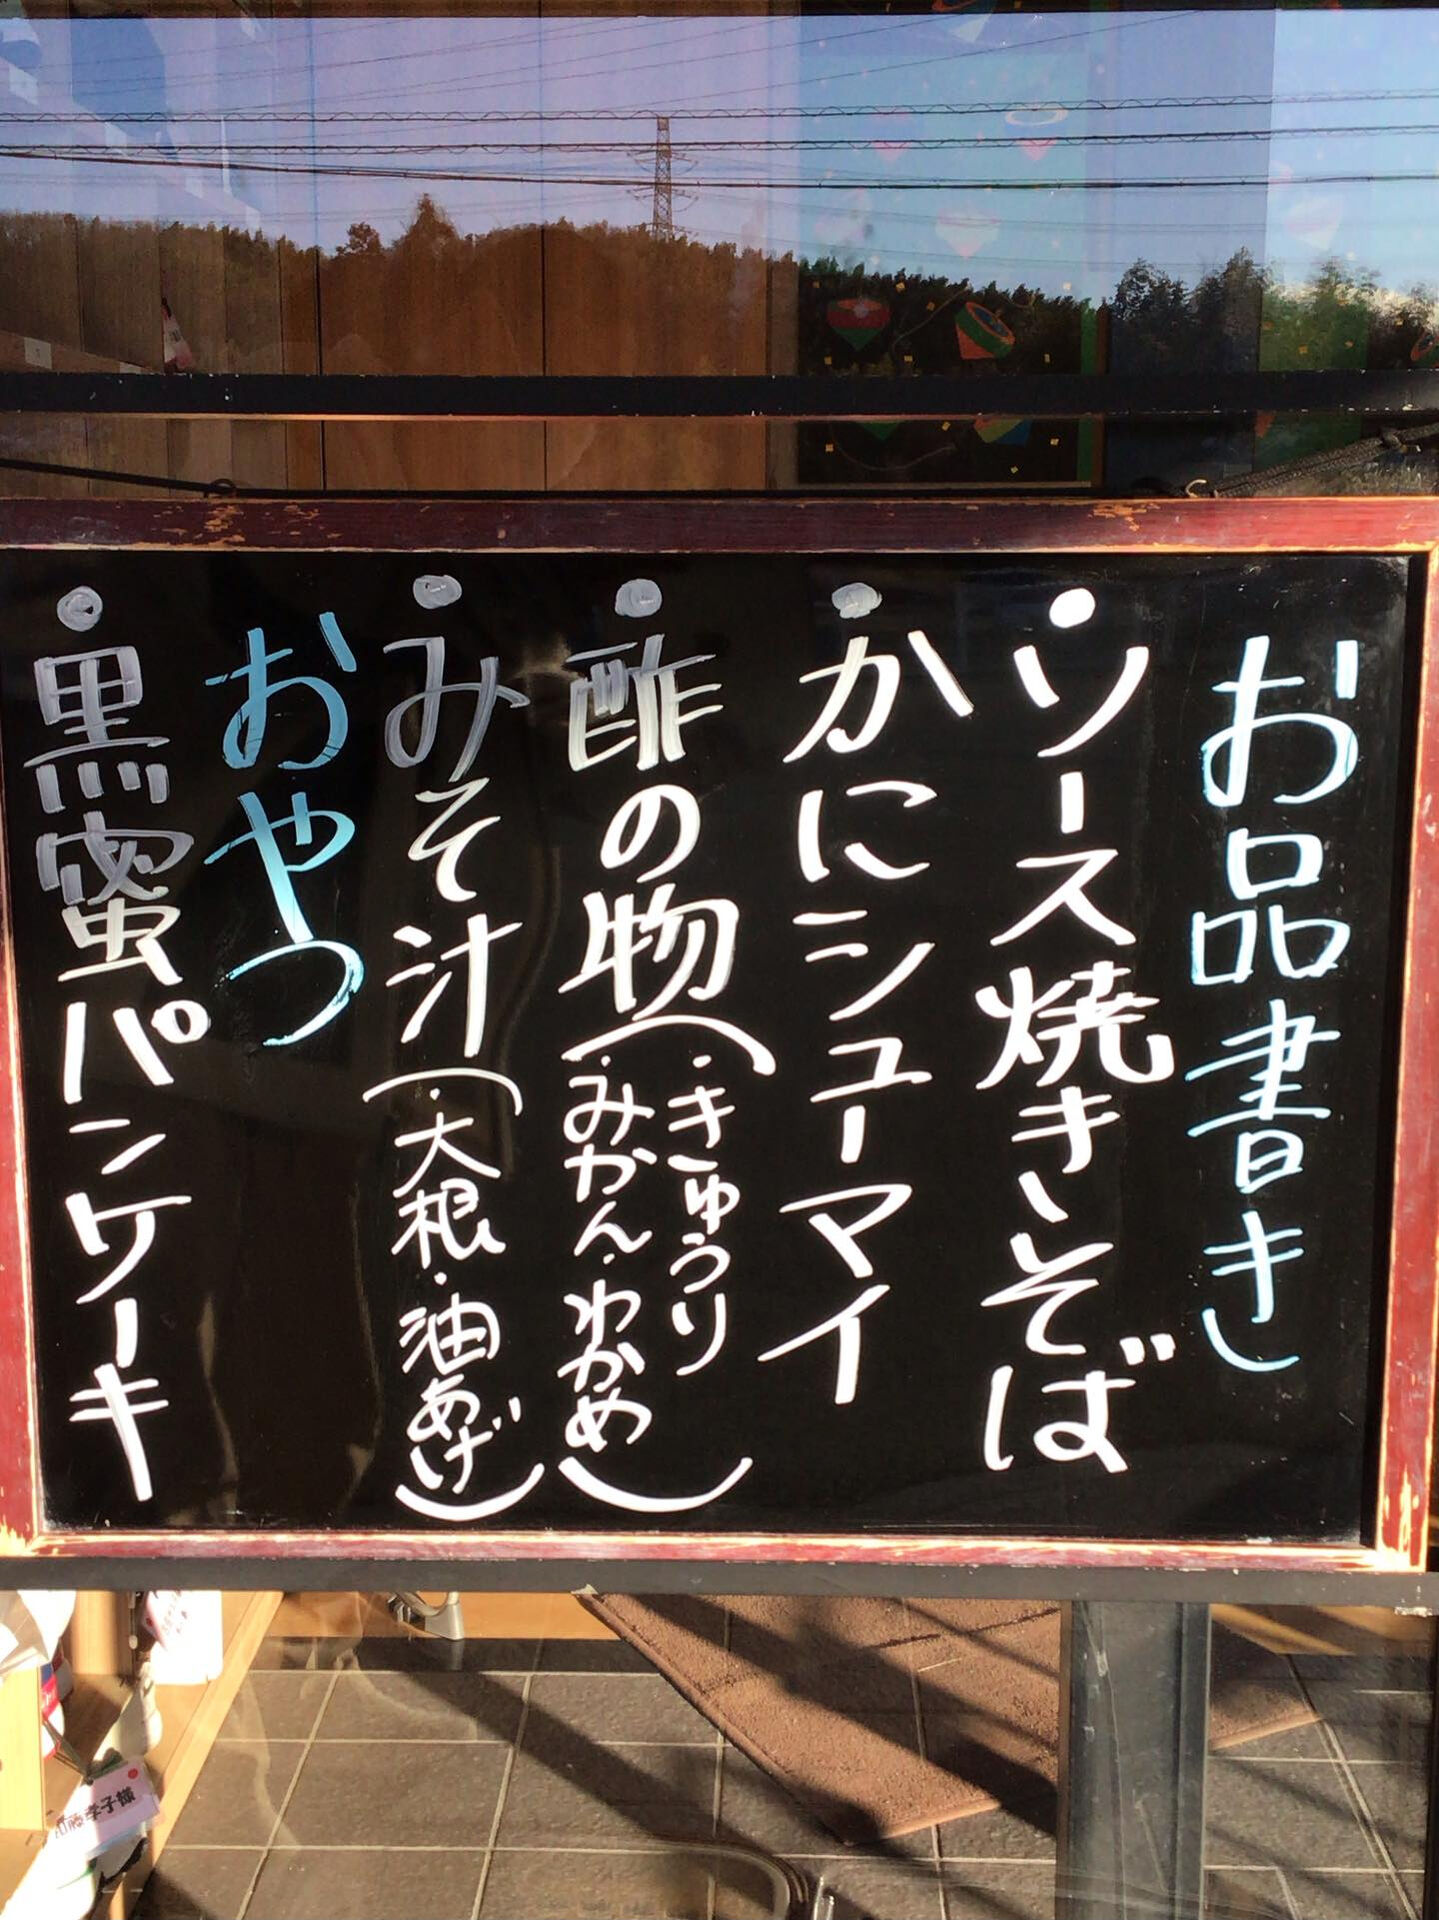 お品書き
・ソース焼きそば
・かにシューマイ
・酢の物(・きゅうり
・みかん・わかめ)
・みそ汁(・大根・油あげ)
おやつ
・黒蜜パンケーキ
孝子様